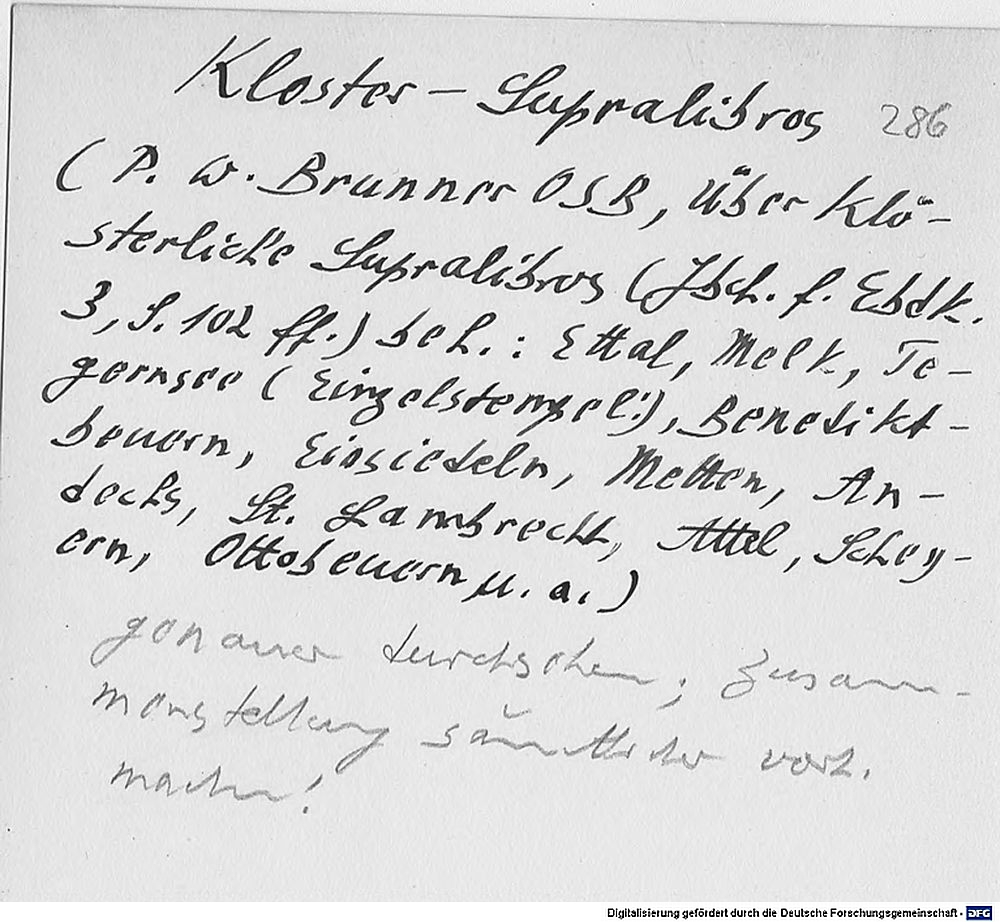 Kloster – Supralibros 286
( P. W. Brunner OSB, Über Klö-
sterliche Supralibros (Jbch. f. Ebdk.
3, S. 102 ff.) beh.: Ettal, Melk, Te-
gernsee ( Einzelstempel!), Benedikt-
beuern, Einsiedeln, Metten, An-
dechs, St. Lambrecht, Attel, Schey-
ern, Ottobeuern u. a. )
genauer durchsehen; Zusam-
menstellung sämtlicher vorh.
machen!
Digitalisierung gefördert durch die Deutsche Forschungsgemeinschaft - DFG